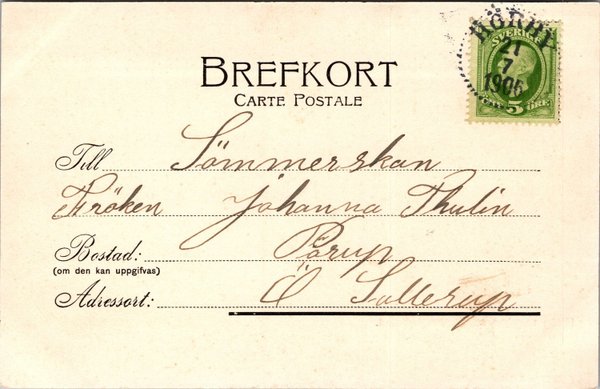 HÖRBY
21
7
1906
SVERIGE
5 ÖRE
BREFKORT
CARTE POSTALE
Till Sömmerskan
Fröken Johanna Thulin
Bostad: Pärup
(om den kan uppgifvas)
Adressort: Ö Sallerup